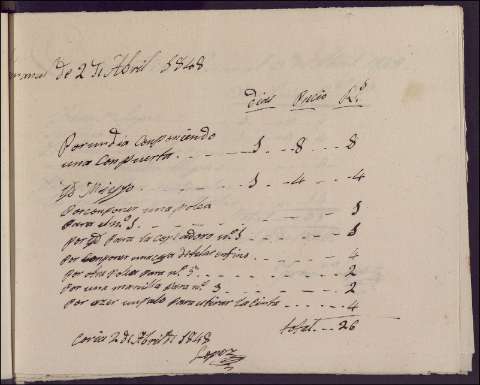 de 2 de Abril 1848
dias Precio R.s
Por un dia conponiendo
una Conpuerta . . . 1 . . 8 . . 8
Yd Mayso . . . 1 . . 4 . . 4
Por conponer una polea
Para el n.º 1 . . . 1
por Yd para la Copiadora n.º 1 . . . 4
por conponer una caja de telar enfino . . . 4
Por otra polea para n.º 5 . . . 2
Por una manilla para n.º 3 . . . 2
Por azer un palo para utirar la cinta . . . 4
total . . 26
Coria 2 de Abril de 1848
Lopez